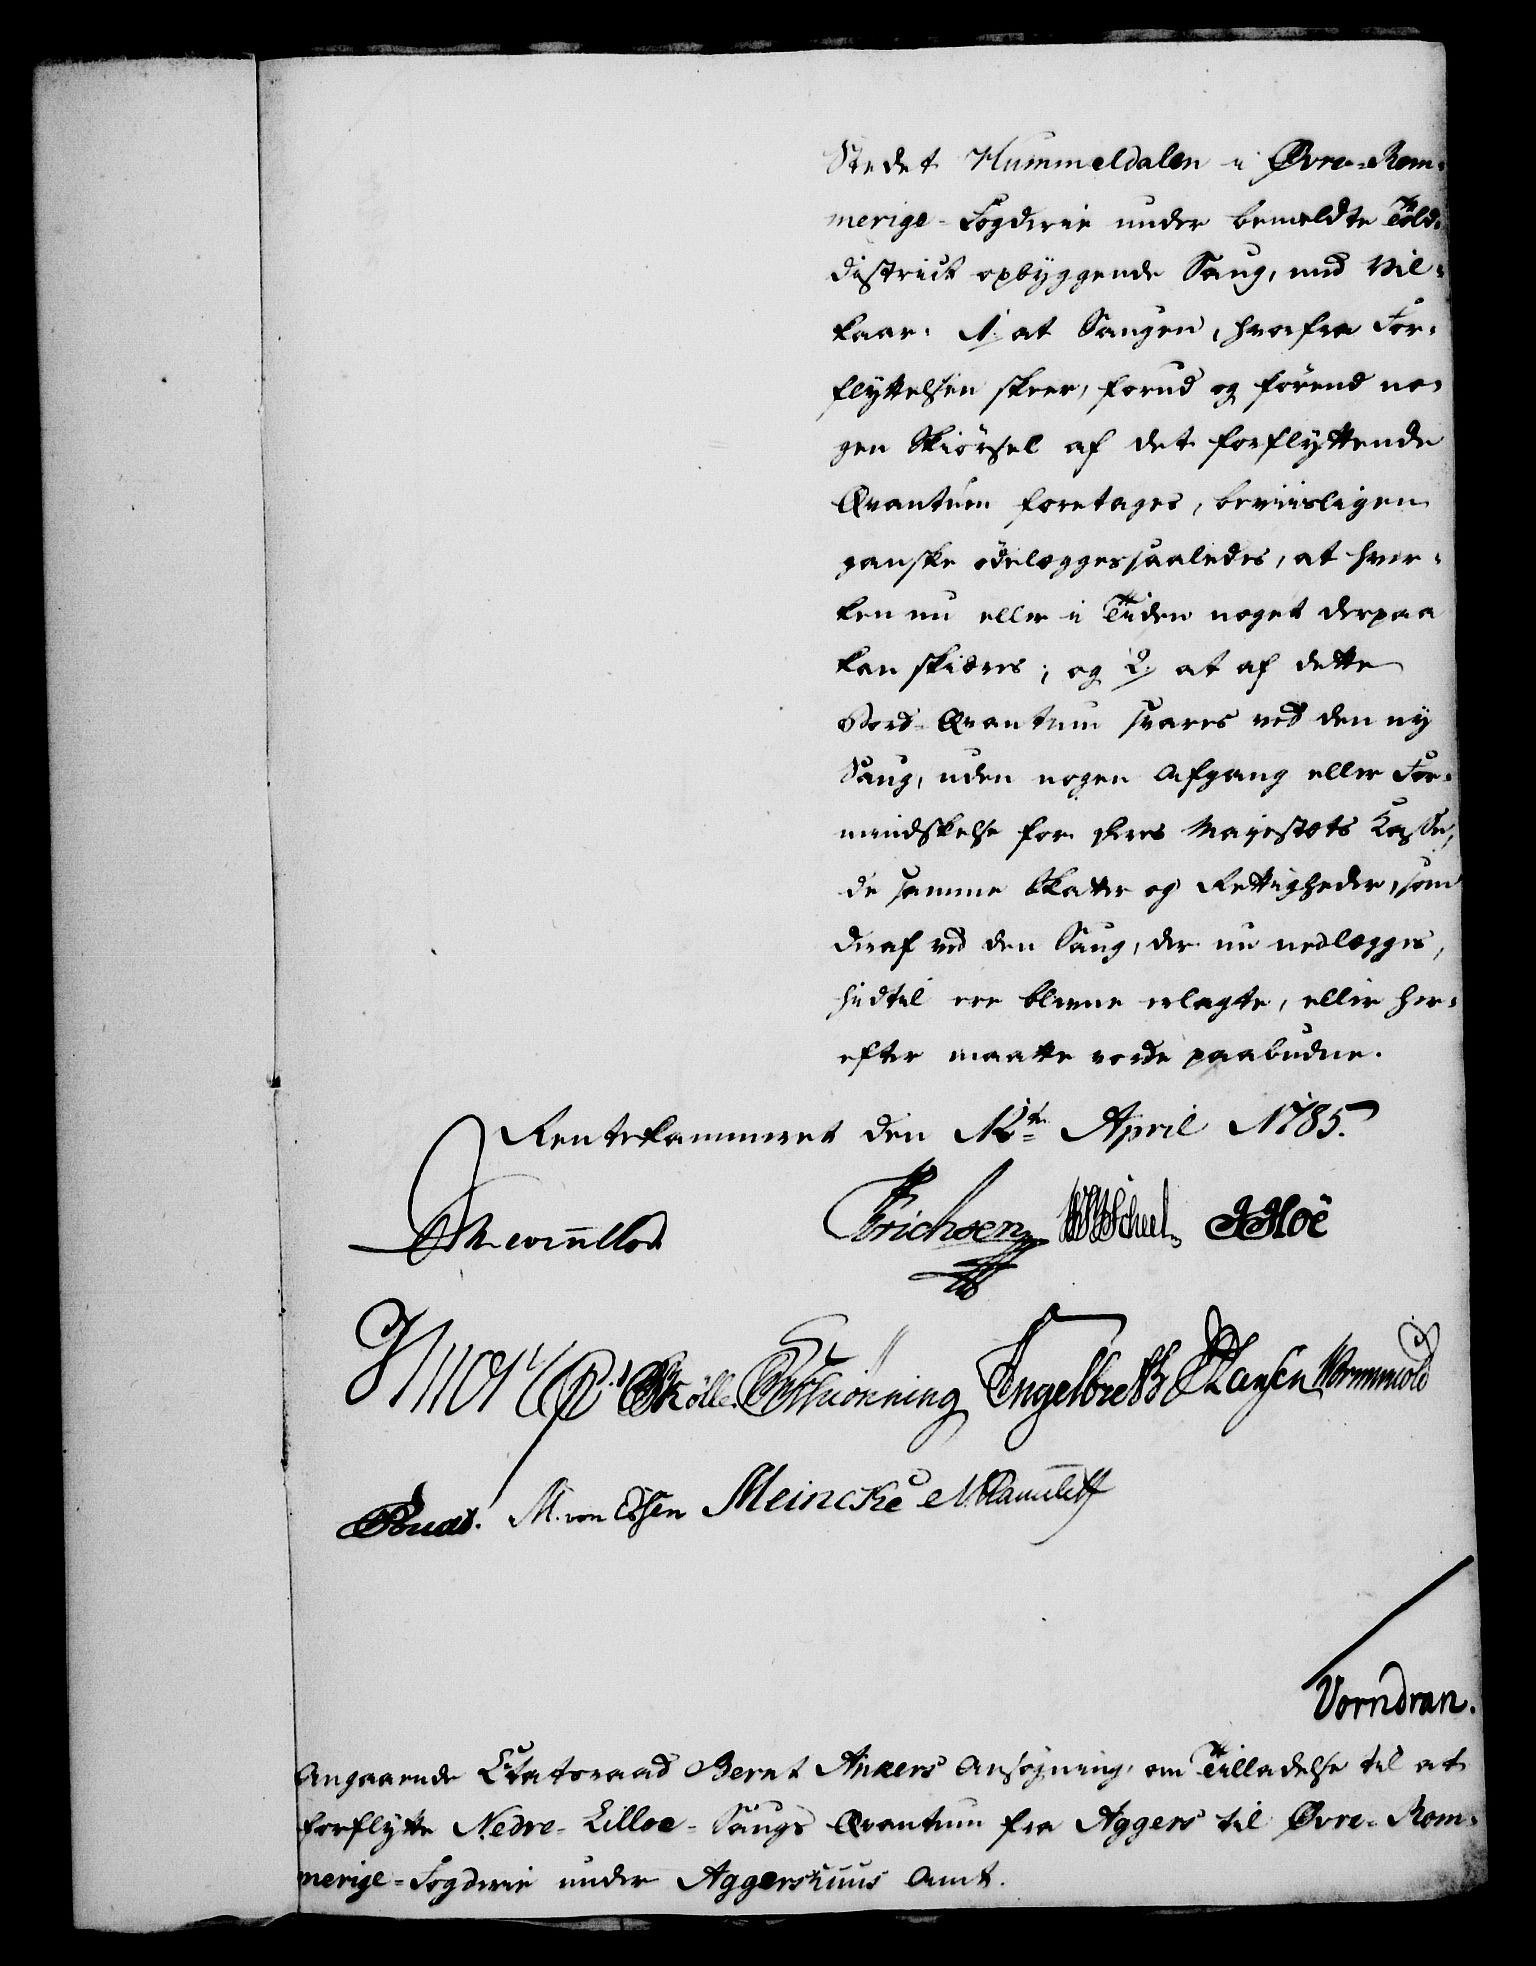 Stedet Hummeldalen i Øvre-Rom-
merige-Fogderie under bemeldte Told-
district opbyggende Saug, med Vil-
kaar: 1/ at Saugen, hvorfra For-
flyttelsen skeer, forud og förend no-
gen Skiörsel af det forflyttende
Qvantum foretages, beviisligen
ganske ödelægges saaledes, at hver-
ken nu eller i Tiden noget derpaa
kan skiæres; og 2/ at af dette
Bord-Qvantum svares ved den ny
Saug, uden nogen Afgang eller For-
mindskelse for Deres Majestæts Kasse,
de samme Skatter og Rettigheder, som
deraf ved den Saug, der nu nedlægges,
hidtil ere blevne erlagte, eller her-
efter maatte vorde paabudne.
Rentekammeret den 12te April 1785.
Erichsen Scheel
Schiönning Engelbreth Hansen Wormskiold
M. von Essen Meincke
Vorndran.
Angaaende Etatsraad Bernt Ankers Ansøgning, om Tilladelse til at
forflytte Nedre-Lilloe-Saugs Qvantum fra Aggers til Øvre-Rom-
merige-Fogderie under Aggershuus Amt.